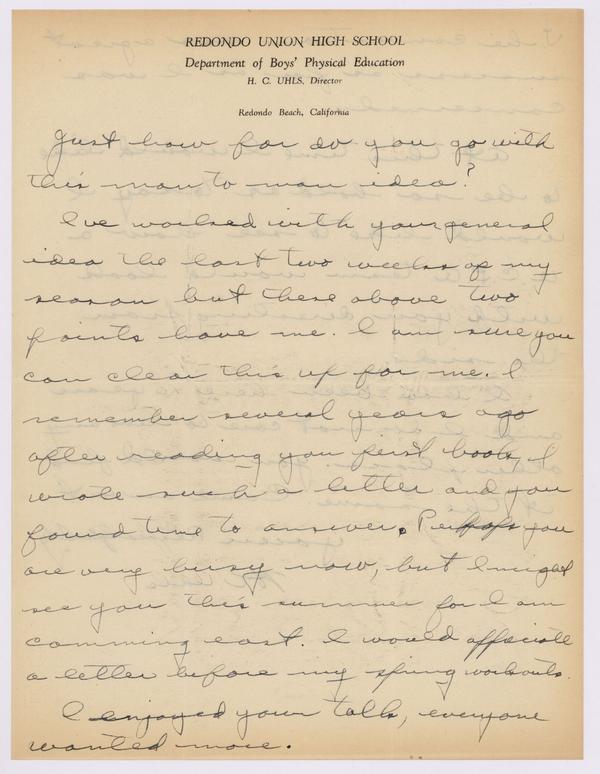 REDONDO UNION HIGH SCHOOL
Department of Boys' Physical Education
H. C. UHLS, Director
Redondo Beach, California
Just how far do you go with
this man to man idea?
I've worked with your general
idea the last two weeks of my
season but these above two
points have me. I am sure you
can clear this up for me. I
remember several years ago
after reading you first book, I
wrote such a letter and you
found time to answer. Perhaps you
are very busy now, but I might
see you this summer for I am
comming east. I would
a letter before my spring workouts.
I enjoyed your talk, everyone
wanted more.